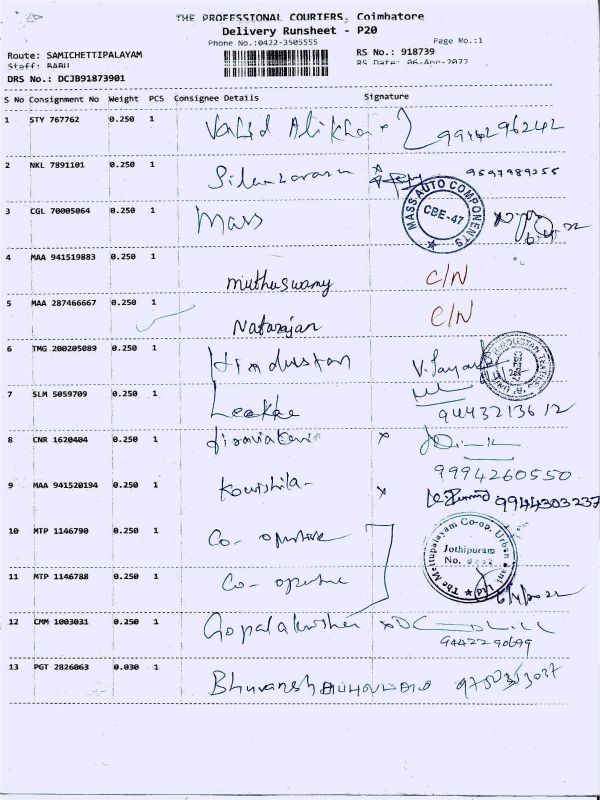 THE PROFESSIONAL COURIERS, Coimbatore
Delivery Runsheet - P20
Phone No.:0422-3505555
Page No.:1
Route: SAMICHETTIPALAYAM
RS No.: 918739
Staff: BABU
RS Date: 06-Apr-2022
DRS No.: DCJB91873901
S No Consignment No Weight PCS Consignee Details Signature
1 STY 767762 0.250 1 Vahid Alikhan 9944296242
2 NKL 7891101 0.250 1 9597989255
3 CGL 70005064 0.250 1 Mass
MASS AUTO COMPONENTS
CBE-47
4 MAA 941519883 0.250 1 muthuswamy C/N
5 MAA 287466667 0.250 1 Natarajan C/N
6 TMG 200205089 0.250 1 Hindustan
7 SLM 5059709 0.250 1 9443213612
8 CNR 1620404 0.250 1
9994260550
9 MAA 941520194 0.250 1 9944303237
10 MTP 1146790 0.250 1 Co-operative
The Mettupalayam Co-op. Urban
Jothipuram
No.
Ltd
11 MTP 1146788 0.250 1 Co-operative
6/4/2022
12 CMM 1003031 0.250 1 Gopalakrishnan
9442290699
13 PGT 2826063 0.030 1